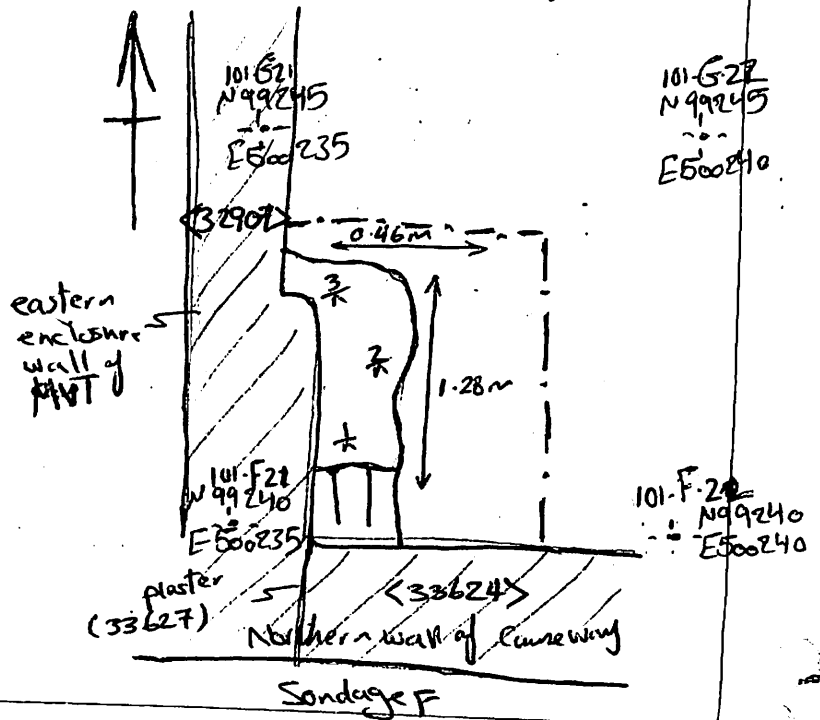 101-G21
N99245
E500235
101-G-22
N99245
E500240
<32907>
0.46m
3
eastern
enclosure
wall of
MVT
2
1.28m
1
101-F21
N99240
E500235
101-F-22
N99240
E500240
plaster
(33627)
<33624>
Northern wall of Causeway
Sondage F